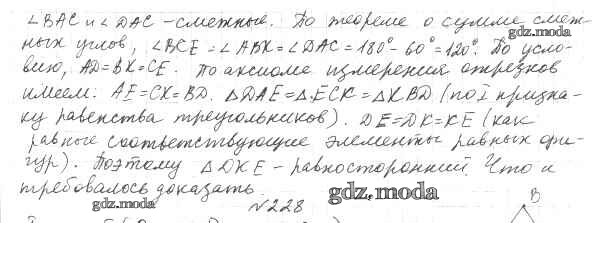 ∠BAC и ∠DAC - смежные. По теореме о сумме смеж-
ных углов, ∠BCE = ∠ABK = ∠DAC = 180° - 60° = 120°. По усло-
gdz.moda
вию, AD = BK = CE. По аксиоме измерения отрезков
имеем: AE = CK = BD. △DAE = △ECK = △KBD (по I призна-
ку равенства треугольников). DE = DK = KE (как
равные соответствующие элементы равных фи-
гур). Поэтому △DKE - равносторонний. Что и
требовалось доказать.
gdz.moda
gdz.moda
№228
B